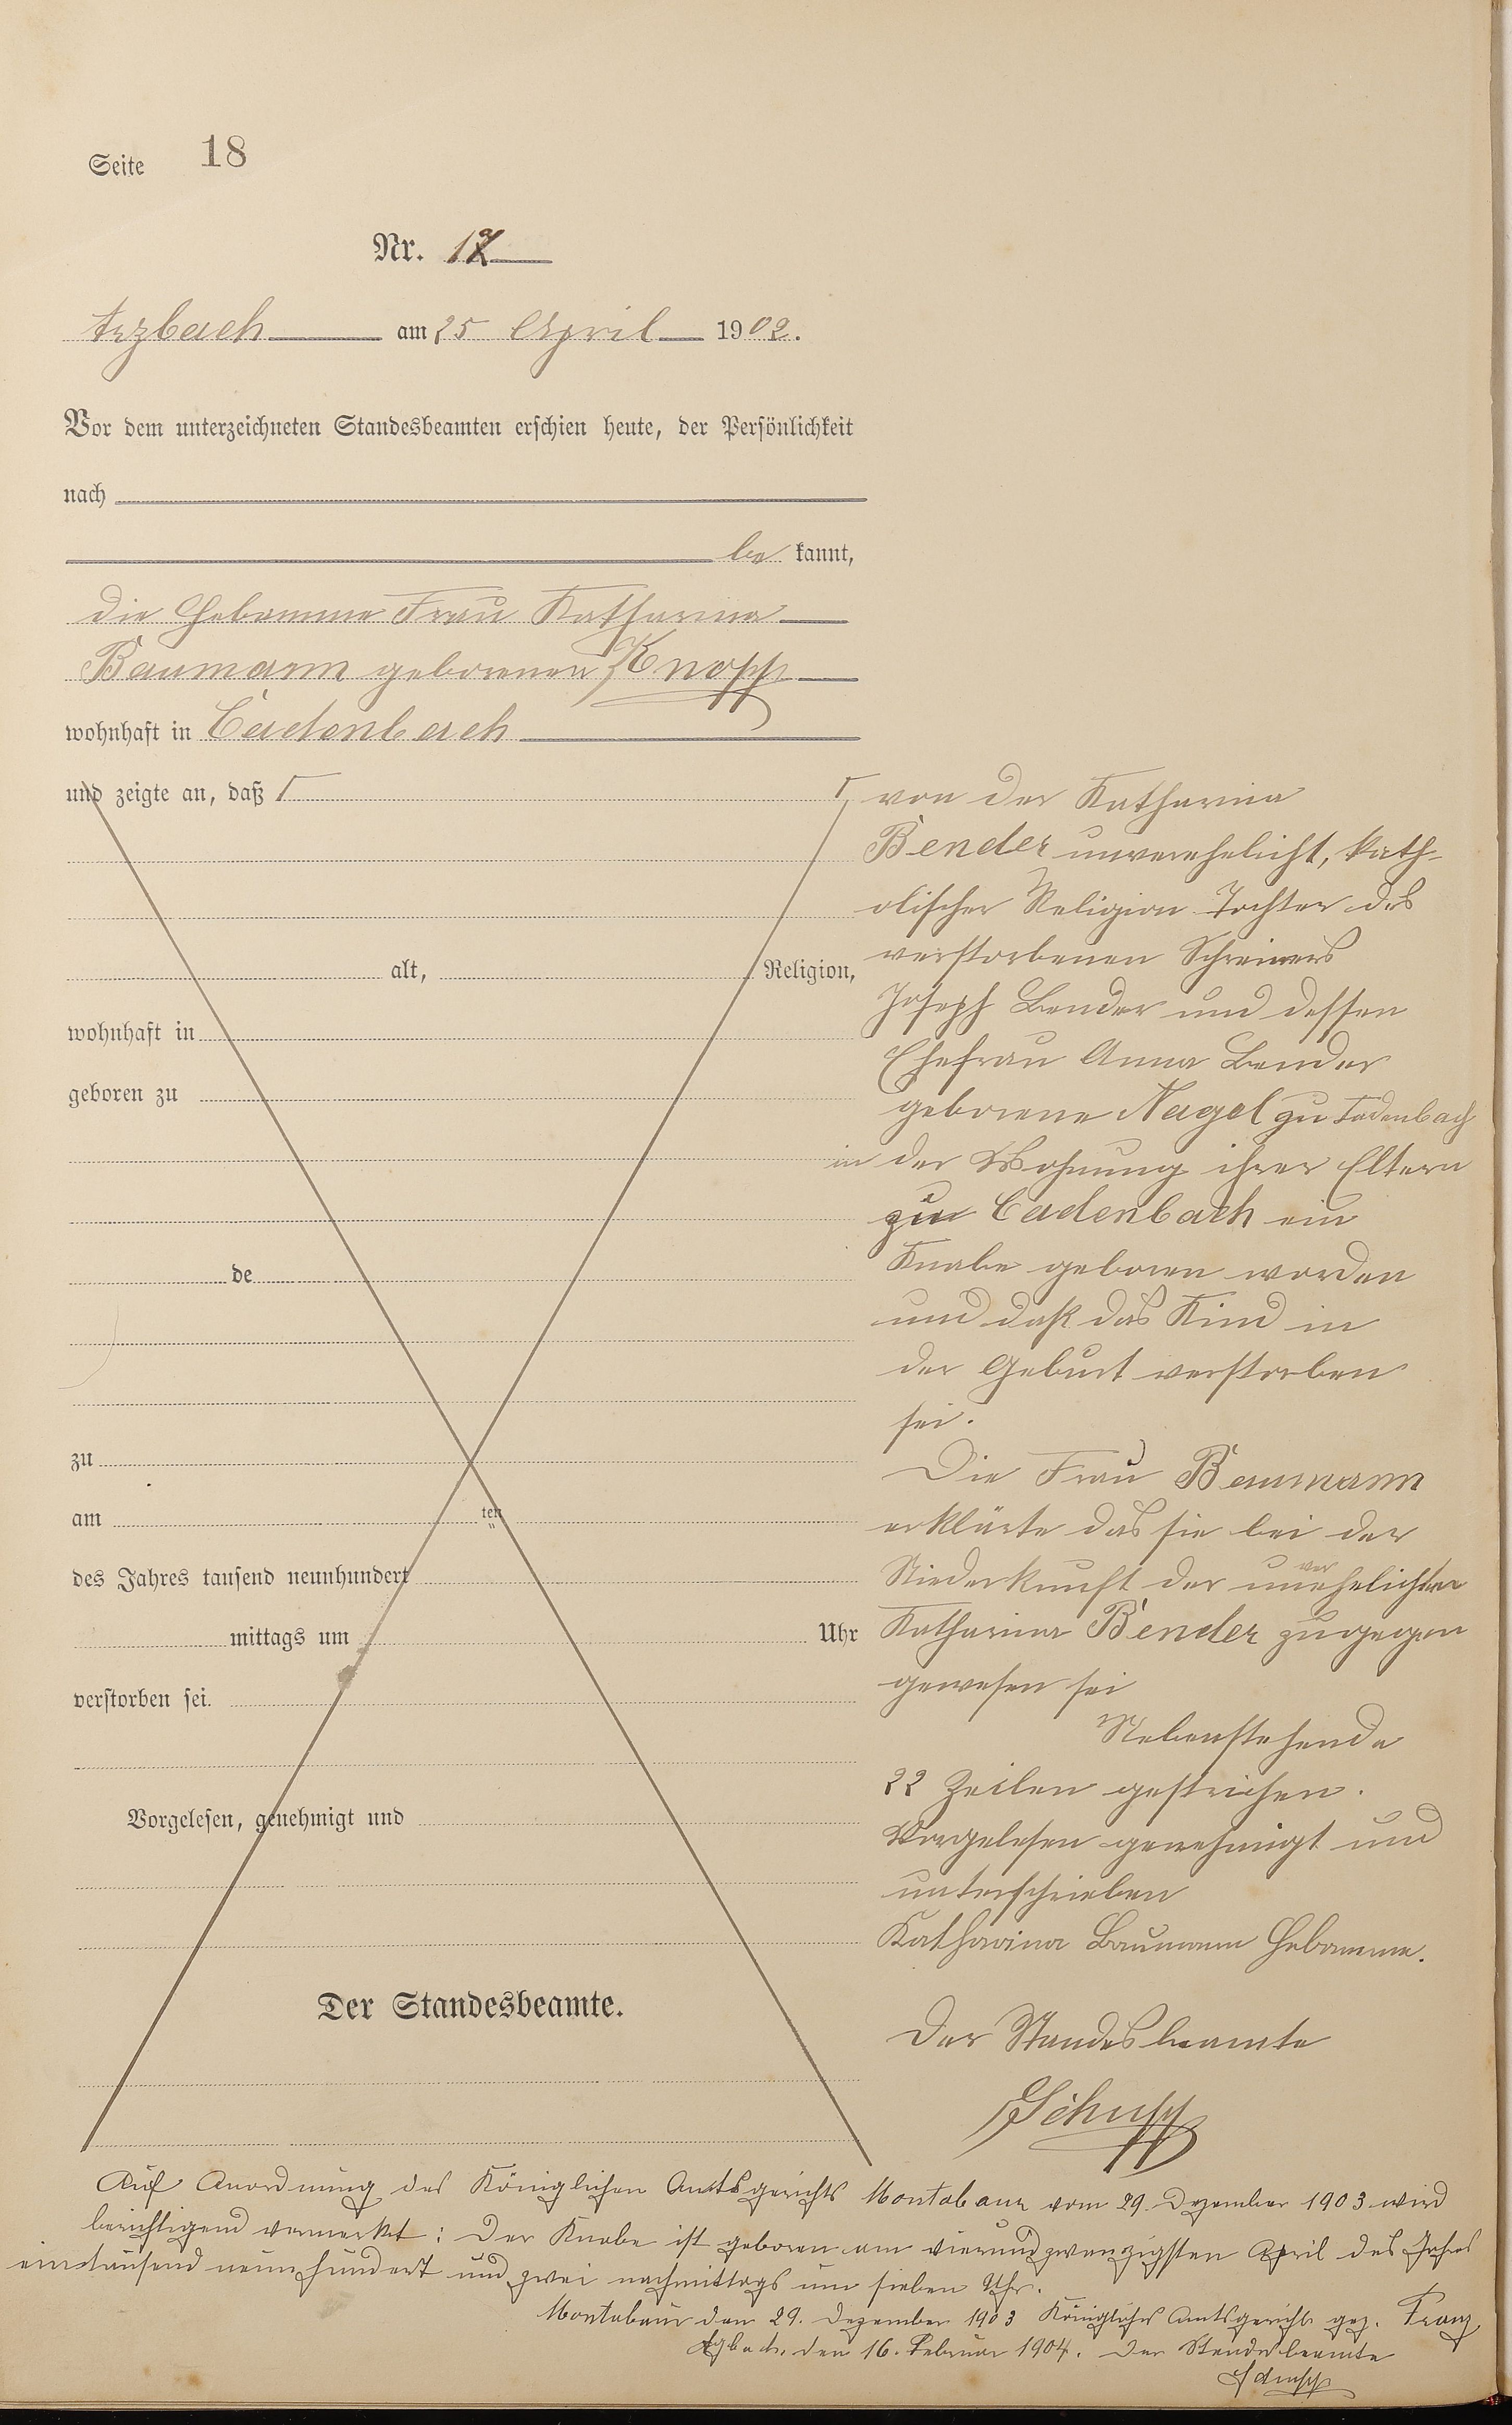 Seite 18
Nr. 17
Arzbach am 25 April 1902.
Vor dem unterzeichneten Standesbeamten erschien heute, der Persönlichkeit
nach
be kannt,
die Hebamme Frau Katharina
Baumann geborenen Knopp
wohnhaft in Cadenbach
und zeigte an, daß
alt, Religion,
wohnhaft in
geboren zu
de
zu
am ten
des Jahres tausend neunhundert
mittags um Uhr
verstorben sei.
Vorgelesen, genehmigt und
Der Standesbeamte.
von der Katharina
Bender unverehelicht, kath-
olischer Religion Tochter des
verstorbenen Schreiners
Joseph Bender und dessen
Ehefrau Anna Bender
geborene Nagel zu Cadenbach
in der Wohnung ihrer Eltern
zu Cadenbach ein
Knabe geboren worden
und daß das Kind in
der Geburt verstorben
sei.
Die Frau Baumann
erklärte das sie bei der
Niederkunft der unverehelichten
Katharina Bender zugegen
gewesen sei
Nebenstehende
22 Zeilen gestrichen.
Vorgelesen genehmigt und
unterschrieben
Katharina Baumann Hebamme.
Der Standesbeamte
Schupp
Auf Anordnung des Königlichen Amtsgerichts Montabaur vom 29. Dezember 1903 wird
berichtigend vermerkt: Der Knabe ist geboren am vierundzwanzigsten April des Jahres
eintausend neunhundert und zwei nachmittags um sieben Uhr.
Montabaur den 29. Dezember 1903 Königliches Amtsgericht gez. Franz
Arzbach, den 16. Februar 1904. Der Standesbeamte
Schupp